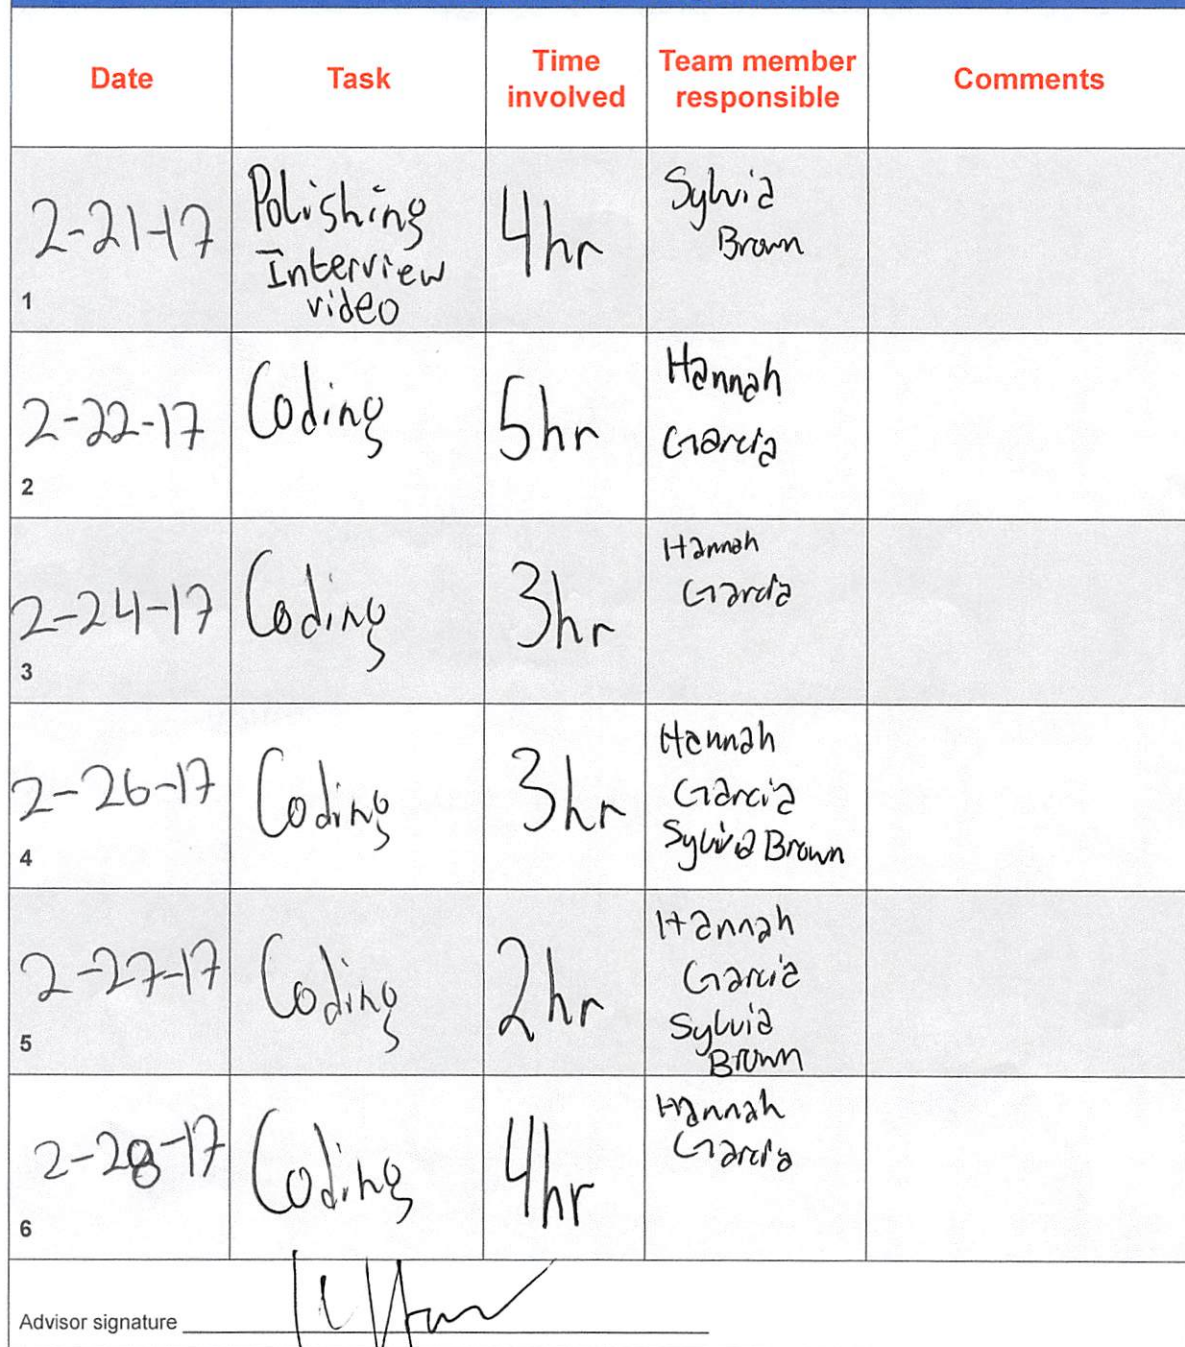 Date Task Time involved Team member responsible Comments
2-21-17
Polishing
Interview
video
4hr
Sylvia
Brown
1
2-22-17
Coding
5hr
Hannah
Garcia
2
2-24-17
Coding
3hr
Hannah
Garcia
3
2-26-17
Coding
3hr
Hannah
Garcia
Sylvia Brown
4
2-27-17
Coding
2hr
Hannah
Garcia
Sylvia
Brown
5
2-28-17
Coding
4hr
Hannah
Garcia
6
Advisor signature